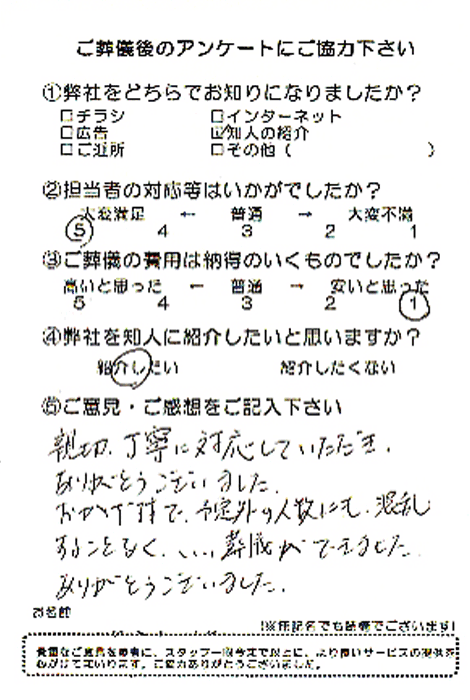 ご葬儀後のアンケートにご協力下さい
①弊社をどちらでお知りになりましたか?
□チラシ □インターネット
□広告 ☑知人の紹介
□ご近所 □その他( )
②担当者の対応等はいかがでしたか?
大変満足 ← 普通 → 大変不満
5 4 3 2 1
③ご葬儀の費用は納得のいくものでしたか?
高いと思った ← 普通 → 安いと思った
5 4 3 2 1
④弊社を知人に紹介したいと思いますか?
紹介したい 紹介したくない
⑤ご意見・ご感想をご記入下さい
親切、丁寧に対応していただき、
ありがとうございました。
おかげ様で、予定外の人数にも、混乱
することなく、いい葬儀ができました。
ありがとうございました。
お名前
(※無記名でも結構でございます)
貴重なご意見を参考に、スタッフ一同今まで以上に、より良いサービスの提供を
心がけてまいります。ご協力ありがとうございました。